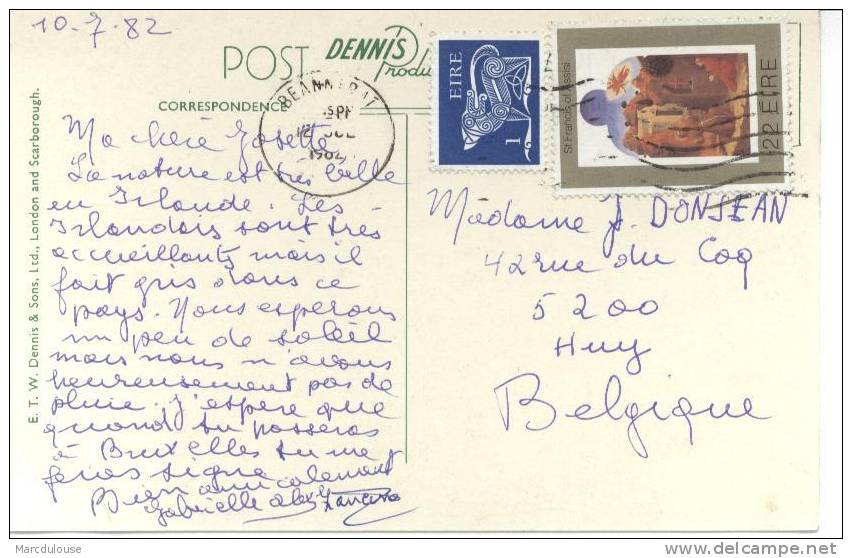 10.7.82
POST
DENNIS
Produ
CORRESPONDENCE
E. T. W. Dennis & Sons, Ltd., London and Scarborough.
SPM
12 JUL
1982
EIRE
1
St Francis of Assisi
22 ÉIRE
Ma chère Josette
La nature est très belle
en Irlande. Les
Irlandais sont très
accueillants mais il
fait gris dans ce
pays. Nous esperons
un peu de soleil
mais nous n'avons
heureusement pas de
pluie. J'espère que
quand tu passeras
à Bruxelles tu me
feras signe
Bien amicalement
Gabrielle
Madame J. DONJEAN
42 rue du Coq
5200
Huy
Belgique
Marcdulouse
delcampe.net